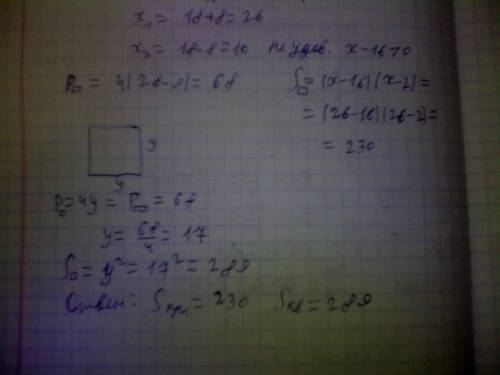 x₁ = 18+8=26
x₂ = 18-8=10 не удов. x-16>0
P▭ = 4(26-9)= 68
S▭ =(x-16)(x-2)=
= (26-16)(26-2)=
= 230
y
y
P□=4y = P▭ = 68
y= 68/4 = 17
S□= y² = 17² = 289
Ответ: Sпр.= 230 Sкв = 289